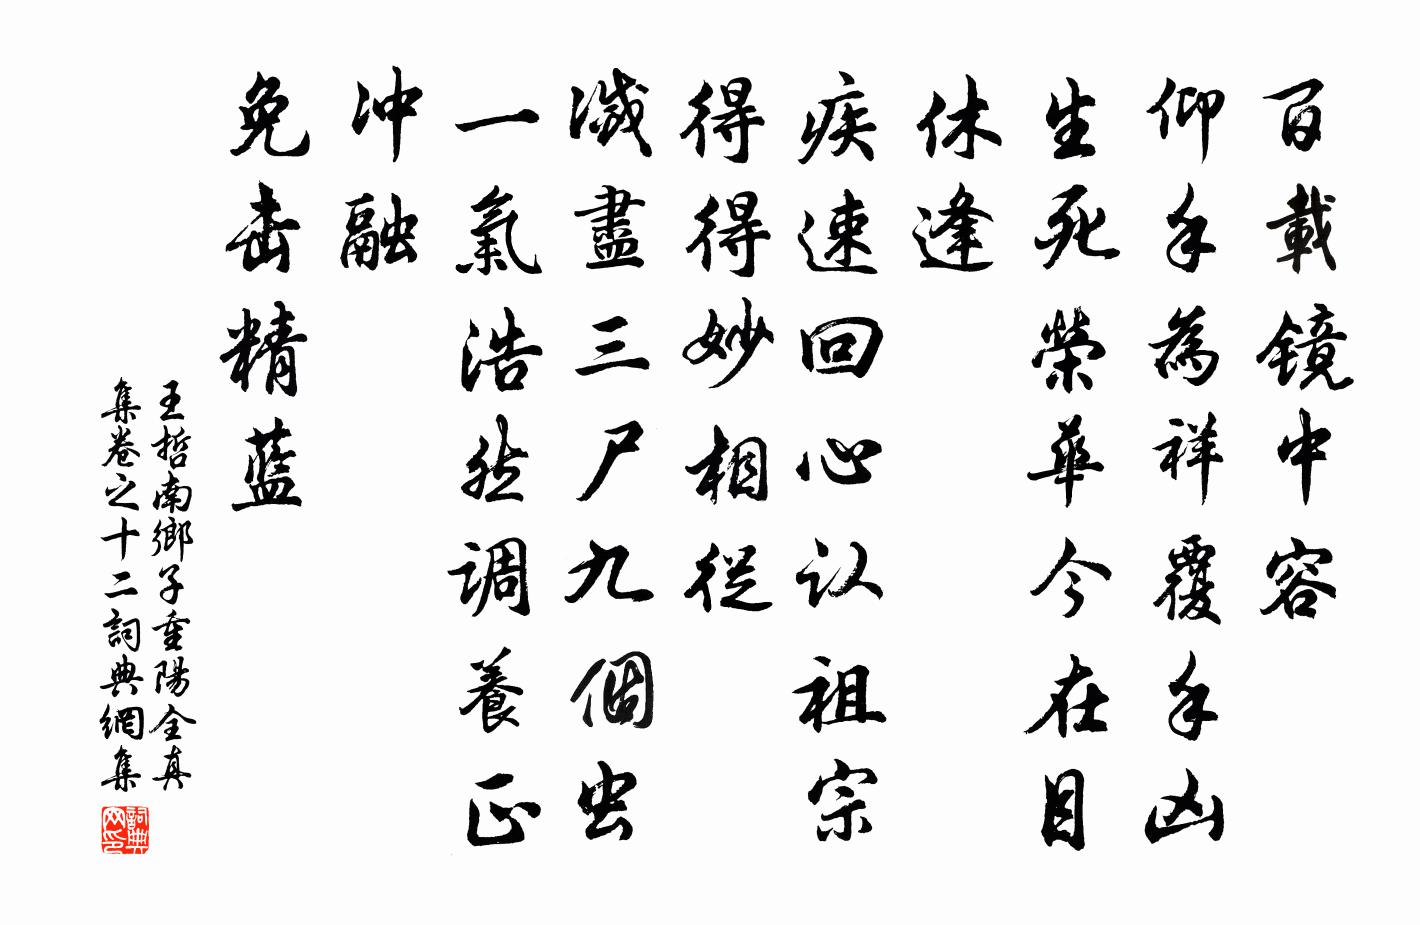 百載镜中容
仰手為祥覆手凶
生死榮華今在目
休逢
疾速回心认祖宗
得得妙相從
滅盡三尸九個虫
一氣浩然调養正
冲融
免击精藍
王哲南鄉子重陽全真
集卷之十二詞典網集
詞典
网印